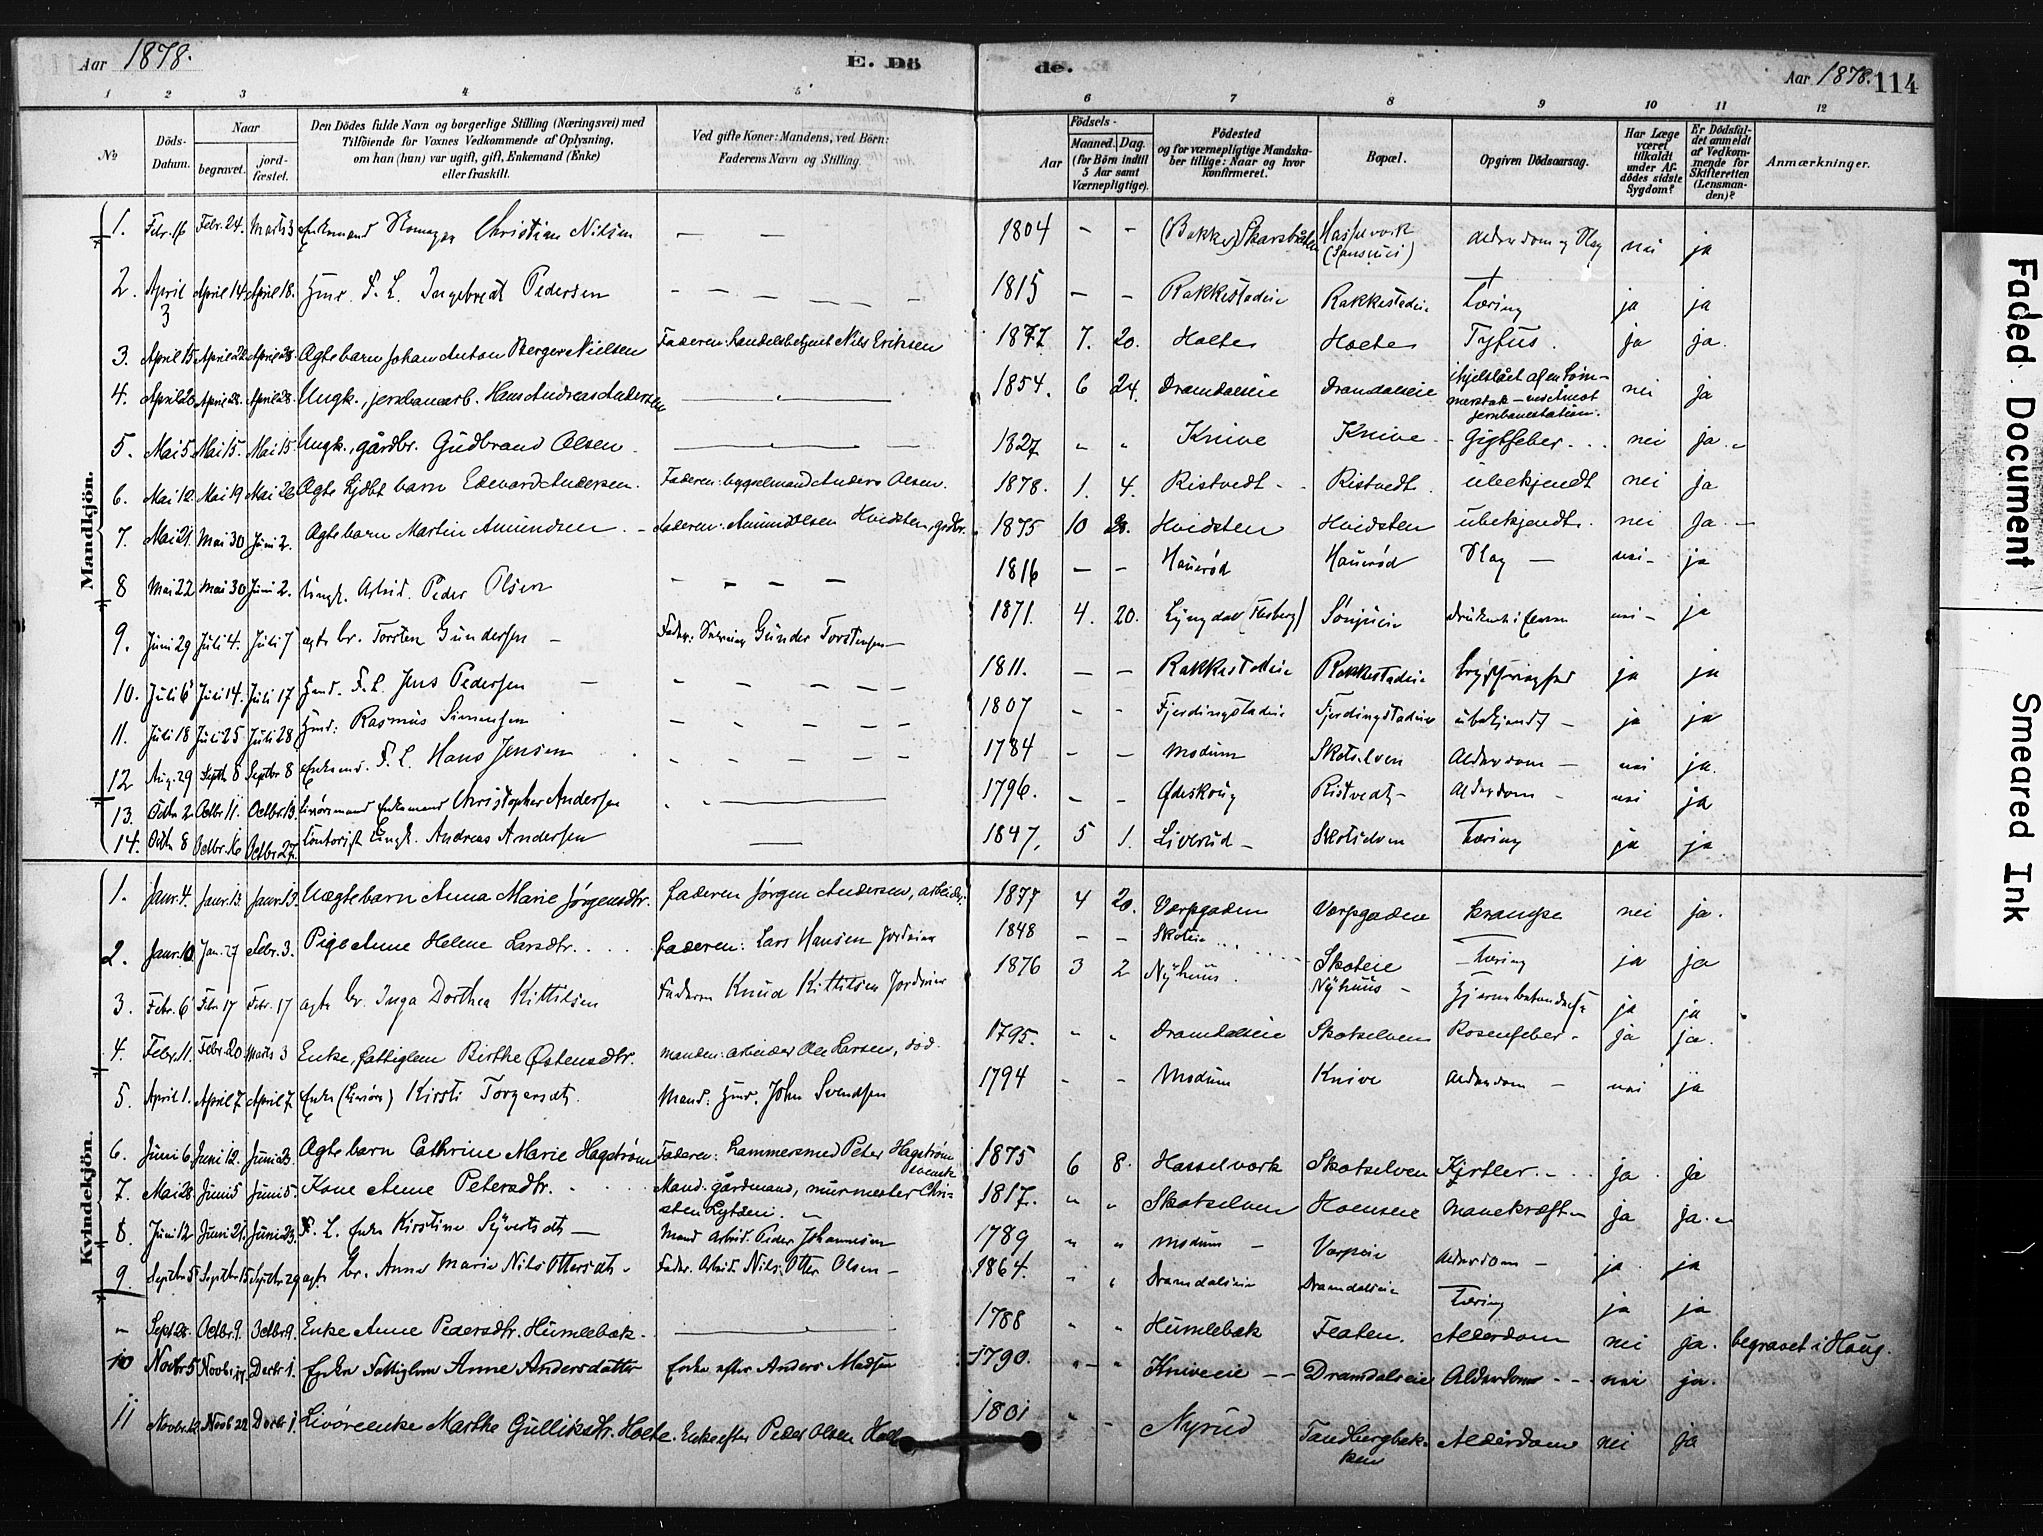 Aar 1878.
E. Dö
de.
Aar 1878. 114
1 2 3 4 5 6 7 8 9 10 11 12
No
Döds-Datum.
Naar
begravet. jordfæstet.
Den Dödes fulde Navn og borgerlige Stilling (Næringsvei) med
Tilföiende for Voxnes Vedkommende af Oplysning,
om han (hun) var ugift, gift, Enkemand (Enke)
eller fraskilt.
Ved gifte Koner: Mandens, ved Börn:
Faderens Navn og Stilling.
Födsels-
Aar Maaned. Dag.
(for Börn indtil
5 Aar samt
Værnepligtige).
Födested
og for værnepligtige Mandskaber tillige: Naar og hvor
Konfirmeret.
Bopæl.
Opgiven Dödsaarsag.
Har Læge været tilkaldt under Afdödes sidste Sygdom?
Er Dödsfaldet anmeldt af Vedkommende for Skifteretten (Lensmanden)?
Anmærkninger.
Mandkjön.
1. Febr. 16 Febr. 24. Marts 3 Enkemand Christian Nilsen — — 1804 - - (Bakke) Hassel værk Alderdom og Slag nei ja
2. April 3 April 14 April 18. Hmd. F. L. Ingebredt Pedersen — 1815 — - Rakkestadeie Rakkestadeie Tæring ja ja
3. April 15 April 22 April 28. Ægte barn Johan Anton Berger Nielsen Faderen: Handelsbetjent Nils Eriksen 1877 7. 20. Holte Holte Tyfus. ja ja.
4. April 23 April 28. April 28. Ungk., jernbanearb. Hans Andreas Andersen — 1854. 6 24. Dramdaleie Dramdaleie ihjelslået af en Tømmerstok – ved Åmot jernbanestation. nei ja
5. Mai 5 Mai 15. Mai 15. Ungk., gårdbr. Gudbrand Olsen. — 1827 " " Knive Knive - Gigtfeber... nei ja. "
6. Mai 12. Mai 19 Mai 26 Ægte barn Edevard Andersen. Faderen: bygselmand Anders Olsen. 1878. 1. 4. Ristvedt - Ristvedt. ubekjendt nei ja
7. Mai 21. Mai 30 Juni 2. Ægte barn Martin Amundsen - Faderen: Amund Olsen Hvidsten, gdbr. 1875 10 28. Hvidsten Hvidsten ubekjendt. nei ja. —
8 Mai 22 Mai 30 Juni 2. Ungk. Arbeid. Peder Olsen - - - - 1816 — - Hauerød Hauerød Slag — nei - ja
9. Juni 29 Juli 4. Juli 7 ægte br. Torsten Gundersen - Fader: Gunder Torstensen — 1871. 4. 20. Lyngdal (Flesberg) Druknet i Elven nei - ja
10. Juli 6 Juli 14. Juli 17 Hmd. F. L. Jens Pedersen - - - - 1811. — - Rakkestadeie Rakkestadeie ja ja
11. Juli 18 Juli 25 Juli 28 Hmd: Rasmus Simensen - - - - 1807 - - Fjerdingstadeie Fjerdingstadeie ubekjendt - ja ja
12 Aug. 29 Septb 8 Septbr 8 Enkemd. F. L. Hans Jensen - - - - 1784 — - Modum Skotselven Alderdom — nei ja.
13. Octbr. 11. Octbr. 13. Enkemand Christopher Andersen 1796. - - Ødeskoug Ristvedt - Alderdom - nei ja
14. 8 Octbr. 16 Octbr 27. Contorist Ungk. Andreas Andersen — 1847, 5 1. Liverud - Skotselven Tæring ja ja
Kvindekjön.
1. Janr. 4. Janr. 13 Janr. 13. Uægte barn Anna Marie Jørgensdtr. Faderen Jørgen Andersen, arbeider. 1877 4 20. Værpgaden Værpgaden Krampe nei ja.
2. Janr. 10. Jan. 27 Febr. 3. Pige Anne Helene Larsdtr.... Faderen: Lars Hansen Jordeier 1848 — - Skoteie... Skoteie Tæring ja ja
3. Febr. 6 Febr. 17 Febr. 17 ægte br. Inga Dorthea Kittilsen Faderen Knud Kittilsen Jordeier 1876 3 2 Nyhuus. Nyhuus - Hjernebetændelse ja ja
4. Febr. 11. Febr 20 Marts 3 Enke, fattiglem Birthe Østensdtr. manden: arbeider Ole Larsen, død. 1795. " " Dramdaleie Skotselven Rosenfeber. ja ja.
5. April 1. April 7 April 7. Enke (Livøre) Kirsti Torgersdt. Mand: Hmd. John Svendsen 1794 - - Modum Knive Alderdom — nei ja
6. Juni 6. Juni 12. Juni 23. Ægte barn Cathrine Marie Hagstrøm Faderen: Hammersmed Peter Hagstrøm svensk 1875 6 8. Hasselværk Skotselven Kjertler - ja. ja
7. Mai 28. Juni 5 Juni 5. Kone Anne Petersdtr. Mand: gårdmand, murmester Christen Lytsen. " 1817. " " Skotselven Hoenseie Mavekræft - ja ja. "
8. Juni 12 Juni 21. Juni 23. F. L. Enke Kirstine Syvertsdt — Mand Arbeid. Peder Johannesen 1789 " " Modum - Værpeie Alderdom - ja. ja
9. Septbr 5 Septbr 15 Septbr 29 ægte br. Anne Marie Nils Ottersdt. Fader. Arbeid. Nils Otter Olsen - 1864. " " Dramdaleie Dramdaleie Tæring ja ja
" Sept 28. Octbr. 9. Octbr 9. Enke Anne Pedersdtr. Humlebæk. — 1788 " " Humlebæk Flaten. Alderdom nei ja. begravet i Haug.
10 Novbr 5 Novbr. 17. Decbr 1. Enke Fattiglem Anne Andersdatter Enke efter Anders Madsen 1790. " - " Kniveeie — — Dramdaleie Alderdom - - nei ja.
11 Novbr. 12 Novb 22 Decbr 1. Livøreenke Marthe Gulliksdtr. Holte. Enke efter Peder Olsen Holt 1801 " - Nyrud Tandbergbakken Alderdom nei ja
Faded Document
Smeared Ink